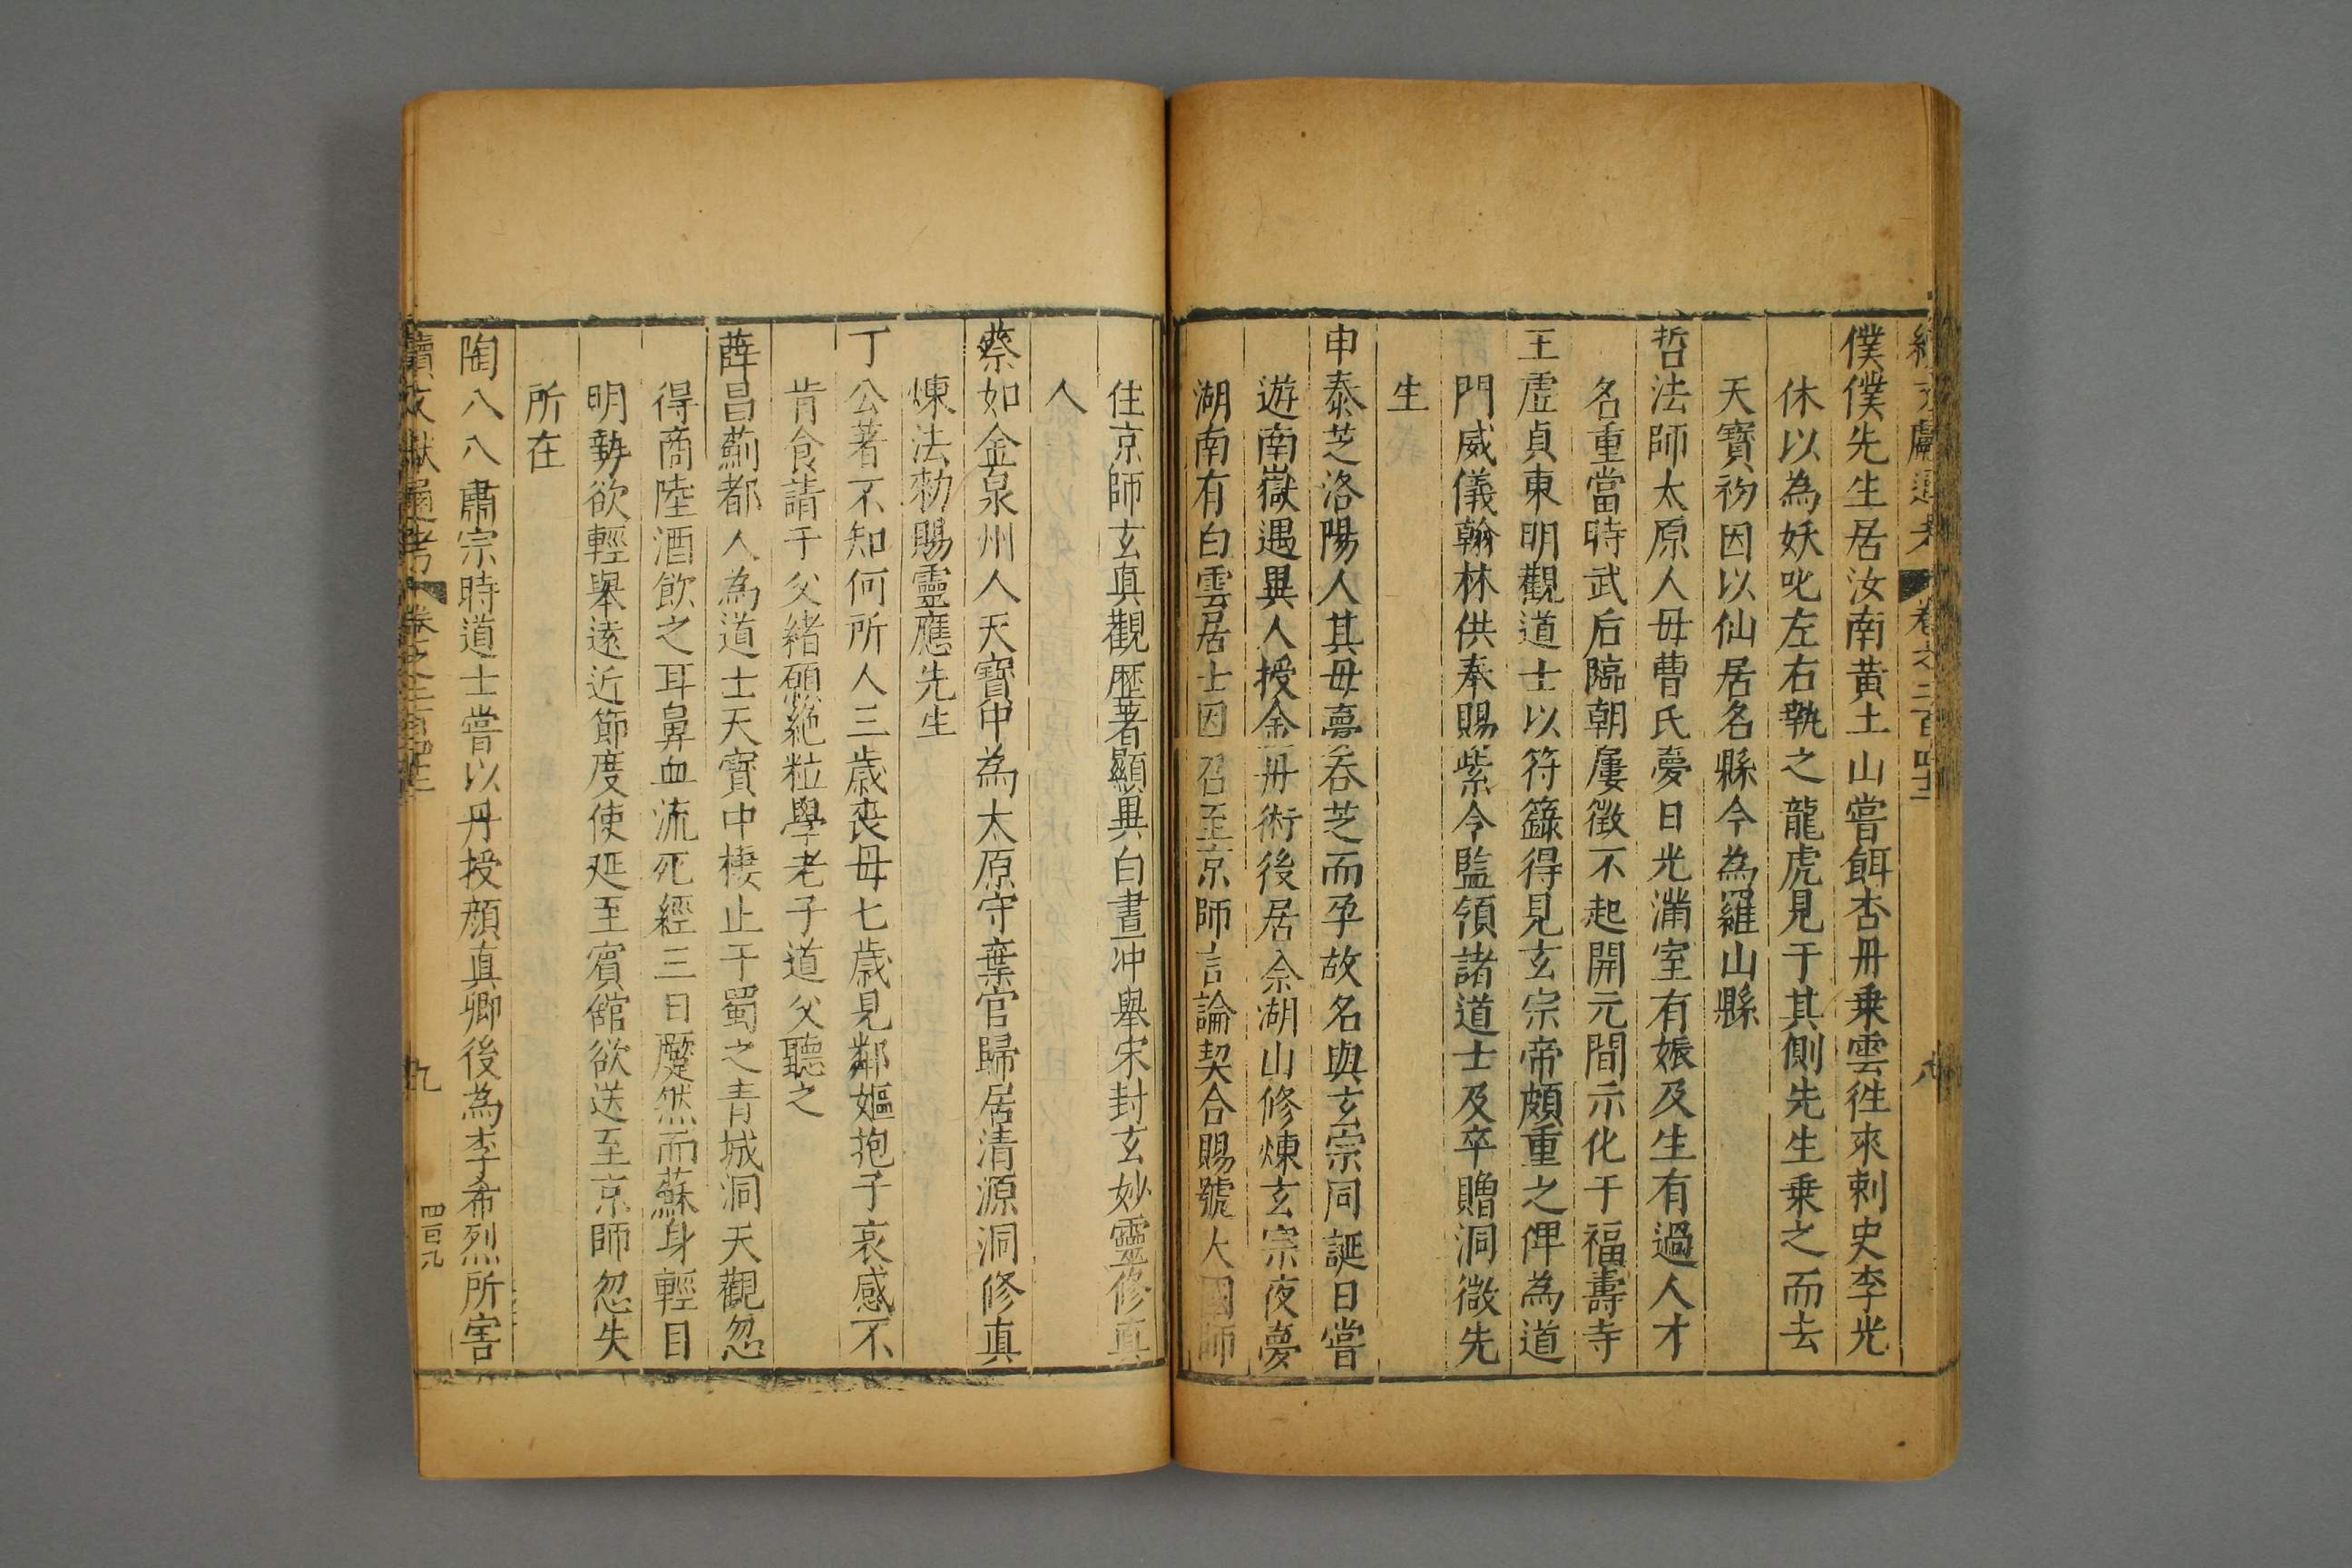 續文獻通考 卷之二百四十二 八
僕僕先生居汝南黃土山嘗餌杏丹乗雲徃來刺史李光
休以為妖叱左右執之龍虎見于其側先生乗之而去
天寶初因以仙居名縣今為羅山縣
哲法師太原人母曹氏夢日光滿室有娠及生有過人才
名重當時武后臨朝屢徵不起開元間示化于福壽寺
王虛貞東明觀道士以符籙得見玄宗帝頗重之俾為道
門威儀翰林供奉賜紫令監領諸道士及卒贈洞微先
生
申泰芝洛陽人其母夢吞芝而孕故名與玄宗同誕日嘗
遊南嶽遇異人授金丹術後居余湖山修煉玄宗夜夢
湖南有白雲居士因召至京師言論契合賜號大國師
住京師玄真觀歷著顯異白晝冲舉宋封玄妙靈修真
人
蔡如金泉州人天寶中為太原守棄官歸居清源洞修真
煉法勑賜靈應先生
丁公著不知何所人三歲喪母七歲見鄰嫗抱子哀感不
肯食請于父緒願絶粒學老子道父聽之
薛昌薊都人為道士天寶中棲止于蜀之青城洞天觀忽
得商陸酒飲之耳鼻血流死經三日蹷然而蘇身輕目
明勢欲輕舉遠近節度使延至賓舘欲送至京師忽失
所在
陶八八肅宗時道士嘗以丹授顏真卿後為李希烈所害
續文獻通考 卷之二百四十二 九 四百九